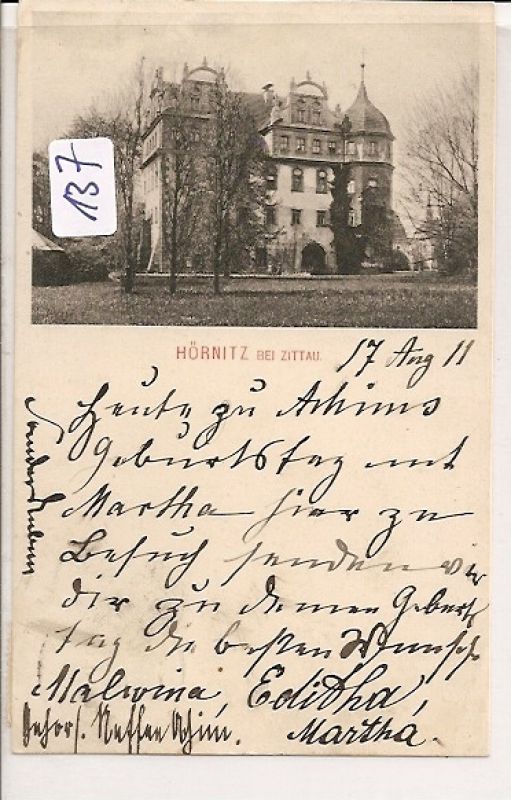 137
HÖRNITZ BEI ZITTAU.
17 Aug 11
Heute zu Achims
Geburtstag mit
Martha hier zu
Besuch senden wir
dir zu deinem Geburts
tag die besten Wünsche
Malwina, Editha,
Martha.
Gehors. Neffe Achim.